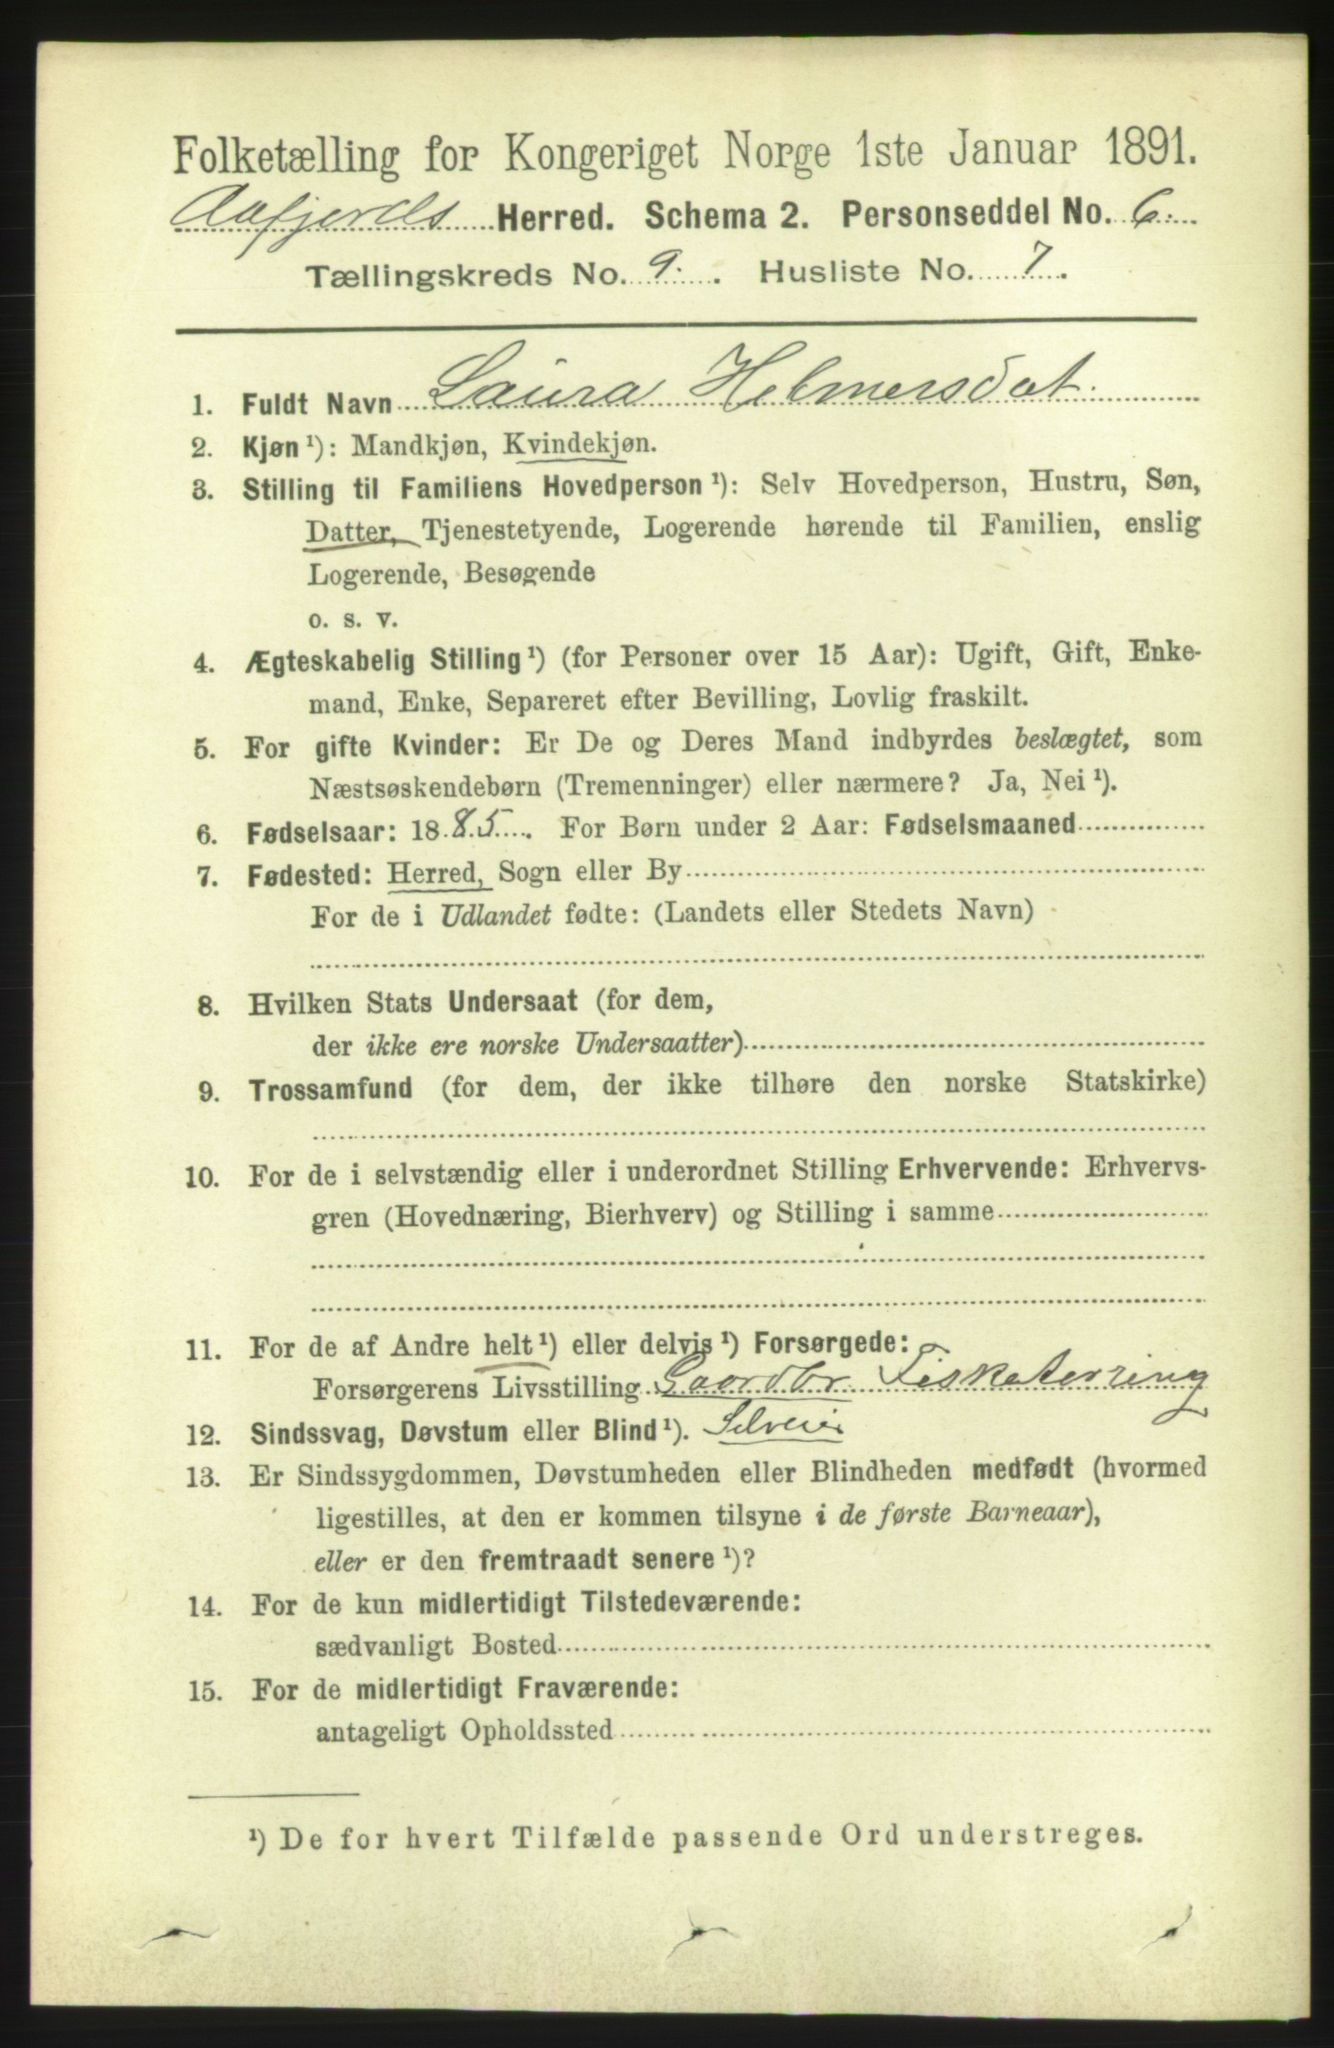 Folketælling for Kongeriget Norge 1ste Januar 1891.
Aafjords Herred. Schema 2. Personseddel No. 6.
Tællingskreds No. 9. Husliste No. 7.
1. Fuldt Navn Laura Helmersdat.
2. Kjøn ¹): Mandkjøn, Kvindekjøn.
3. Stilling til Familiens Hovedperson ¹): Selv Hovedperson, Hustru, Søn,
Datter, Tjenestetyende, Logerende hørende til Familien, enslig
Logerende, Besøgende
o. s. v.
4. Ægteskabelig Stilling ¹) (for Personer over 15 Aar): Ugift, Gift, Enke-
mand, Enke, Separeret efter Bevilling, Lovlig fraskilt.
5. For gifte Kvinder: Er De og Deres Mand indbyrdes beslægtet, som
Næstsøskendebørn (Tremenninger) eller nærmere? Ja, Nei ¹).
6. Fødselsaar: 1885. For Børn under 2 Aar: Fødselsmaaned
7. Fødested: Herred, Sogn eller By
For de i Udlandet fødte: (Landets eller Stedets Navn)
8. Hvilken Stats Undersaat (for dem,
der ikke ere norske Undersaatter)
9. Trossamfund (for dem, der ikke tilhøre den norske Statskirke)
10. For de i selvstændig eller i underordnet Stilling Erhvervende: Erhvervs-
gren (Hovednæring, Bierhverv) og Stilling i samme
11. For de af Andre helt ¹) eller delvis ¹) Forsørgede:
Forsørgerens Livsstilling Gaardbr Fisketerring
12. Sindssvag, Døvstum eller Blind ¹). Selveier
13. Er Sindssygdommen, Døvstumheden eller Blindheden medfødt (hvormed
ligestilles, at den er kommen tilsyne i de første Barneaar),
eller er den fremtraadt senere ¹)?
14. For de kun midlertidigt Tilstedeværende:
sædvanligt Bosted
15. For de midlertidigt Fraværende:
antageligt Opholdssted
¹) De for hvert Tilfælde passende Ord understreges.